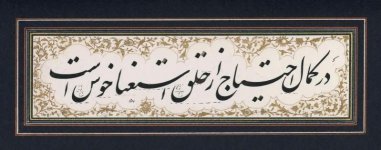 در کمال احتیاج از خلق استغنا خوش است